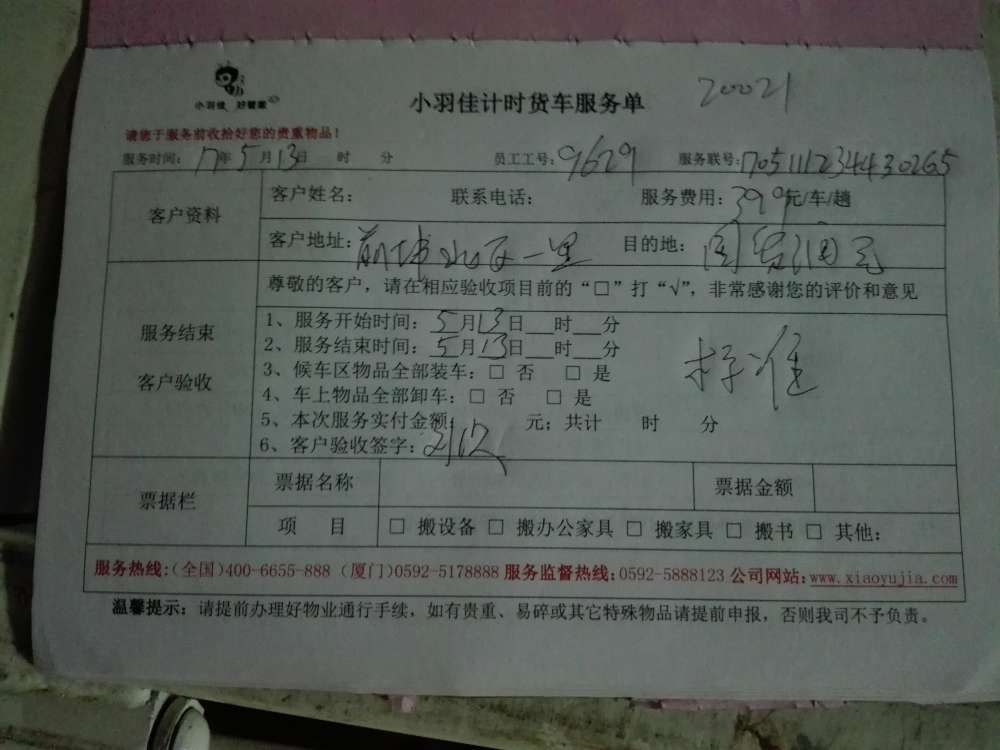 小羽佳 好管家
小羽佳计时货车服务单 20021
请您于服务前收拾好您的贵重物品！
服务时间：17年5月13日 时 分 员工工号：9629 服务联号：170511123443026​5
客户资料 客户姓名： 联系电话： 服务费用：399元/车/趟
客户地址：前埔北区一里 目的地：
尊敬的客户，请在相应验收项目前的“□”打“√”，非常感谢您的评价和意见
服务结束
客户验收
1、服务开始时间：5月13日__时__分
2、服务结束时间：5月13日__时__分
标准
3、候车区物品全部装车：□ 否 □ 是
4、车上物品全部卸车：□ 否 □ 是
5、本次服务实付金额： 元；共计 时 分
6、客户验收签字：
票据栏 票据名称 票据金额
项 目 □ 搬设备 □ 搬办公家具 □ 搬家具 □ 搬书 □ 其他：
服务热线：（全国）400-6655-888（厦门）0592-5178888 服务监督热线：0592-5888123 公司网站：www.xiaoyujia.com
温馨提示：请提前办理好物业通行手续，如有贵重、易碎或其它特殊物品请提前申报，否则我司不予负责。